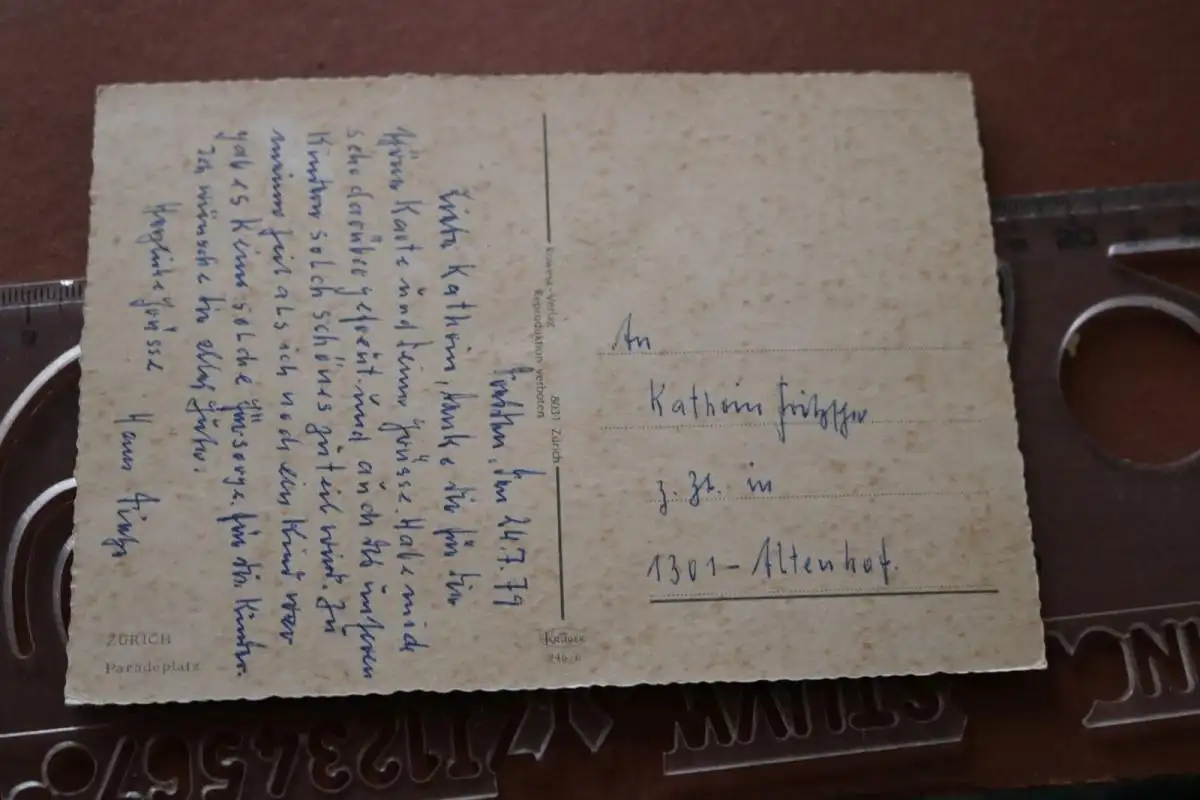 ZÜRICH
Paradeplatz
Dresden, den 24.7.79
Liebe Kathrin, danke dir für die
schöne Karte und deine Grüsse. Habe mich
sehr darüber gefreut und auch das unseren
Kindern solch schönes zuteil wird. Zu
meiner Zeit als ich noch ein Kind war
gab es keine solche Fürsorge für die Kinder.
Ich wünsche dir alles Gute.
Herzliche Grüsse
Hans
Verlag 8031 Zürich
Reproduktion verboten
Krüger
An
Kathrin Fritzsche
z. Zt. in
1301 - Altenhof.